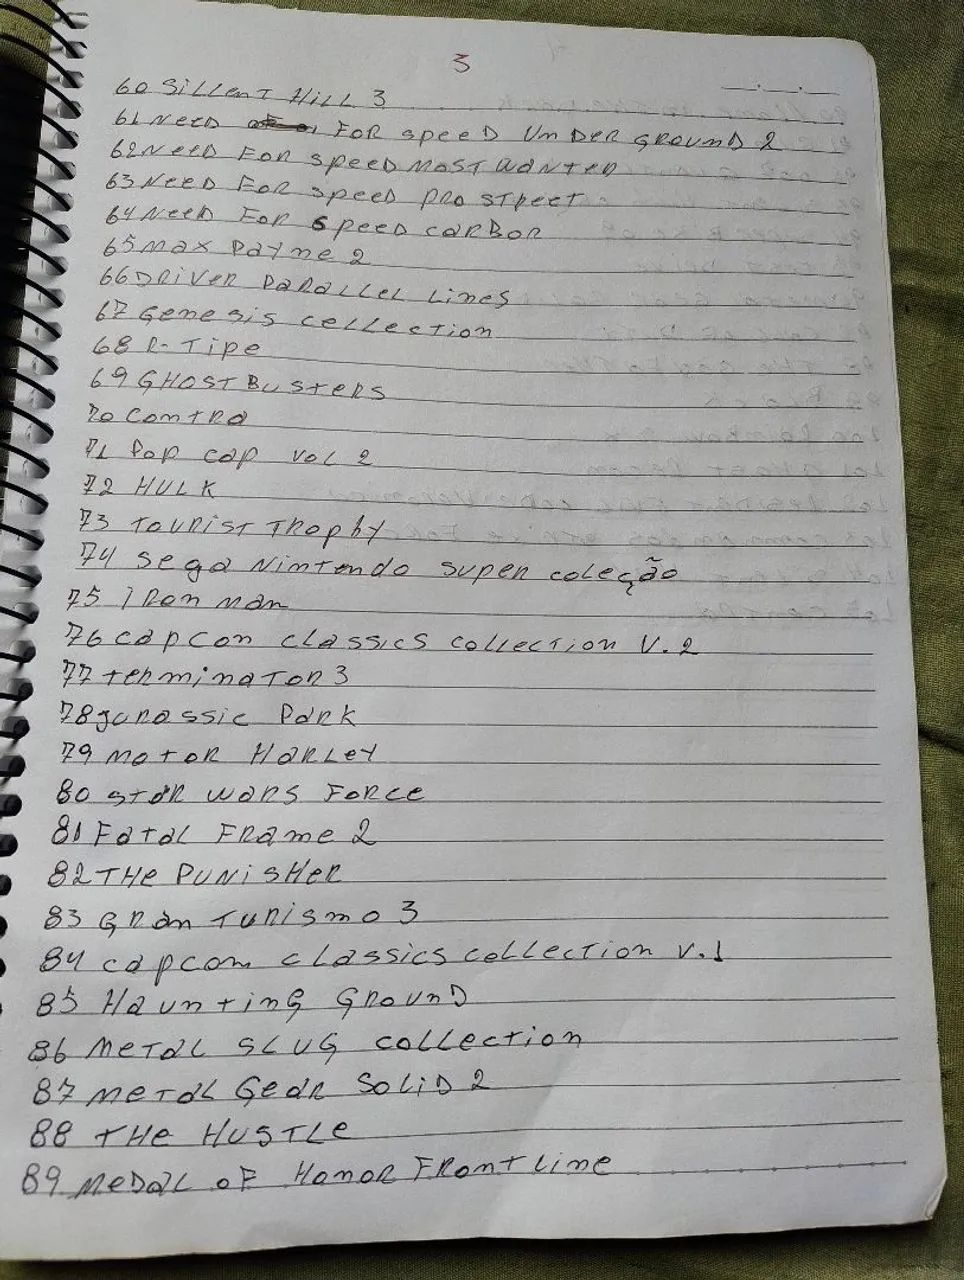 3
60 Sillent Hill 3
61 Need For speed Under ground 2
62 Need For speed most wanted
63 Need For speed pro street
64 Need For speed carbon
65 max payme 2
66 Driver parallel lines
67 Genesis collection
68 R-Tipe
69 Ghost Busters
70 contra
71 Pop cap vol 2
72 Hulk
73 Tourist Trophy
74 Sega Nintendo super coleção
75 Iron man
76 capcon classics collection V.2
77 terminator 3
78 jurassic park
79 motor Harley
80 star wars Force
81 Fatal Frame 2
82 The Punisher
83 Gran turismo 3
84 capcom classics collection v.1
85 Haunting Ground
86 Metal Slug collection
87 metal Gear Solid 2
88 the Hustle
89 Medal of Honor Frontline